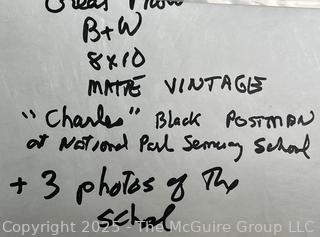 Great Photo
B+W
8x10
MATTE VINTAGE
"Charles" Black POSTMAN
at National Park Semnary School
+ 3 photos of The
School
Copyright 2025 - The McGuire Group LLC